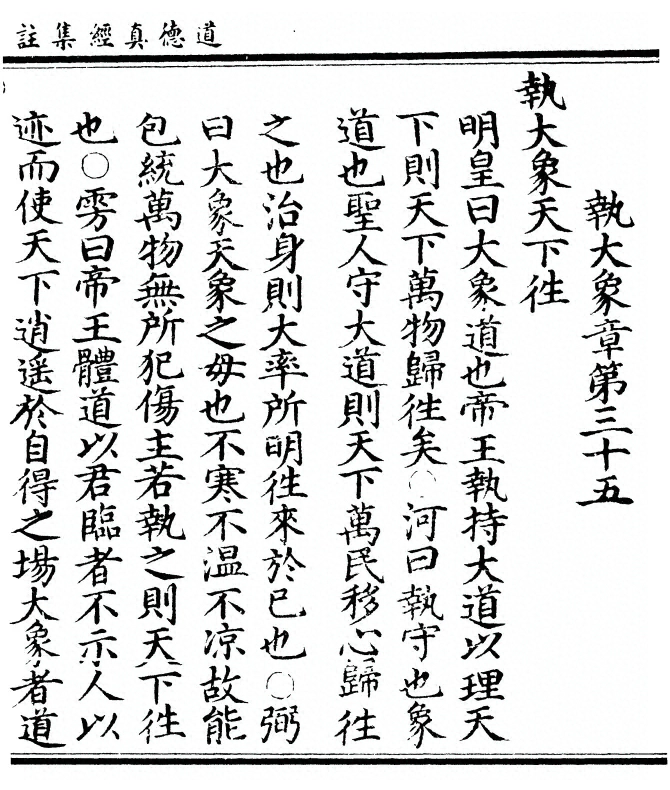 道德真經集註
執大象章第三十五
執大象天下徃
明皇曰大象道也帝王執持大道以理天
下則天下萬物歸徃矣○河曰執守也象
道也聖人守大道則天下萬民移心歸徃
之也治身則大率所明徃來於已也○弼
曰大象天象之毋也不寒不温不凉故能
包統萬物無所犯傷主若執之則天下徃
也○雱曰帝王體道以君臨者不示人以
迹而使天下逍遥於自得之場大象者道